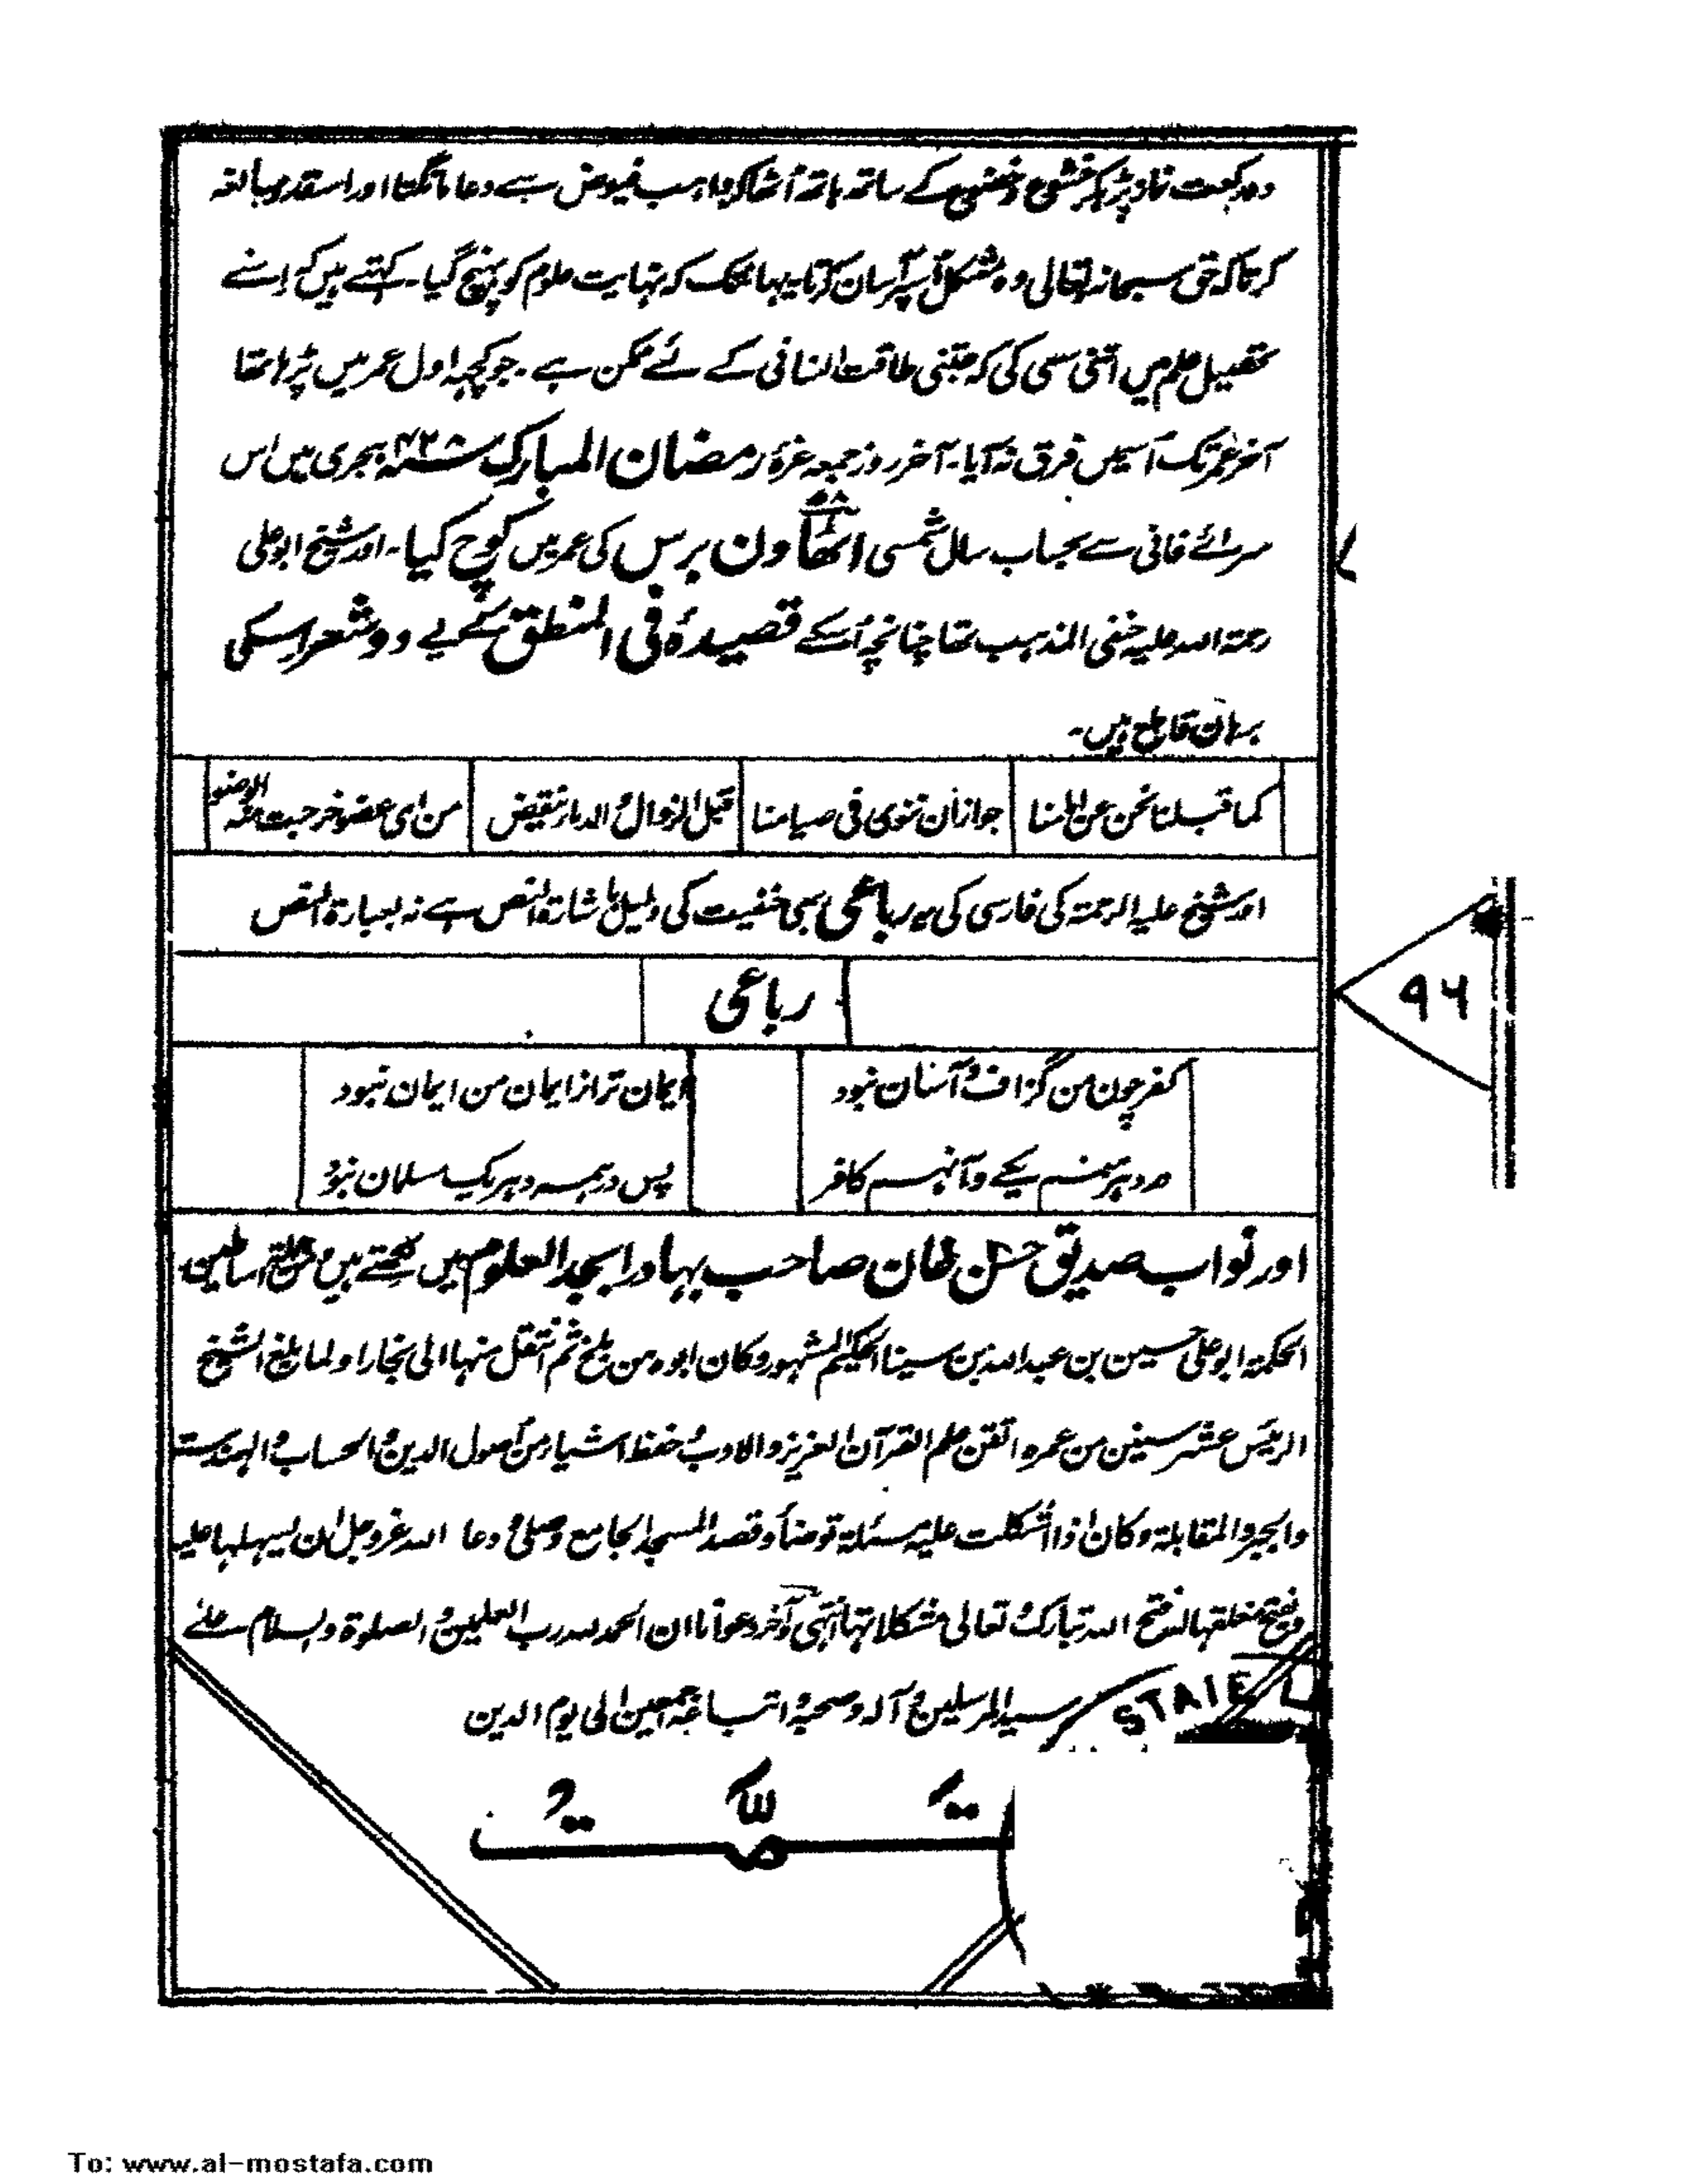 دو رکعت نماز پڑہکر خشوع وخضوع کے ساتھ ہاتھ اُٹھاکر واہب فیوض سے دعا مانگتا اور اسقدر مبالغہ
کرتا کہ حق سبحانہ تعالی وہ مشکل اُسپر آسان کرتا یہانتک کہ نہایت علوم کو پہنچ گیا۔ کہتے ہیں کہ اِسنے
تحصیل علم میں اتنی سعی کی کہ جتنی طاقت انسانی کے لئے ممکن ہے۔ جو کچہہ اول عمر میں پڑہا تھا
آخر عمر تک اُسمیں فرق نہ آیا۔ آخر روز جمعہ غرۂ رمضان المبارک ۴۲۸؁ہجری میں اس
سرائے فانی سے بحساب سال شمسی اٹھاون ۵۸ برس کی عمر میں کوچ کیا۔ اور شیخ ابوعلی
رحمۃ اللہ علیہ حنفی المذہب تھا چنانچہ اُسکے قصیدۂ فی المنطق کے یے دو شعر اِسکی
برہان قاطع ہیں۔
کما قبلنا نحن عن
جواز أن ننوی فی صیامنا
قبل الزوال و الدار نقیض
من ای عضو خرجت منہ الوضو
اور شیخ علیہ الرحمۃ کی فارسی کی یہ رباعی بہی حنفیت کی دلیل باشارۃ النص ہے نہ بعبارۃ النص
رباعی
کفر چون من گزاف و آسان نبود
ایمان تر از ایمان من ایمان نبود
در دہر یکے و آنہم کافر
پس در ہمہ دہر یک مسلمان نبود
۹۶
اور نواب صدیق حسن خان صاحب بہادر ابجد العلوم میں لکھتے ہیں اساطین
الحکمۃ ابو علی حسین بن عبد اللہ بن سینا الحکیم المشہور وکان ابوہ من بلخ ثم انتقل منہا الی بخارا ولما بلغ الشیخ
الرئیس عشر سنین من عمرہ اتقن علم القرآن العزیز والادب و حفظ اشیاء من اصول الدین و الحساب و الہندسۃ
والجبر والمقابلۃ وکان اذا اشکلت علیہ مسئلۃ توضأ وقصد المسجد الجامع وصلی و دعا اللہ عزوجل ان یسہلہا علیہ
ویفتح مغلقہا لہ فتح اللہ تبارک و تعالی مشکلاتہا انتہی و آخر دعوانا ان الحمد للہ رب العلمین و الصلوۃ والسلام علے
سید المرسلین و آلہ وصحبہ و اتباعہ اجمعین الی یوم الدین
STATE L
تمت
To: www.al-mostafa.com